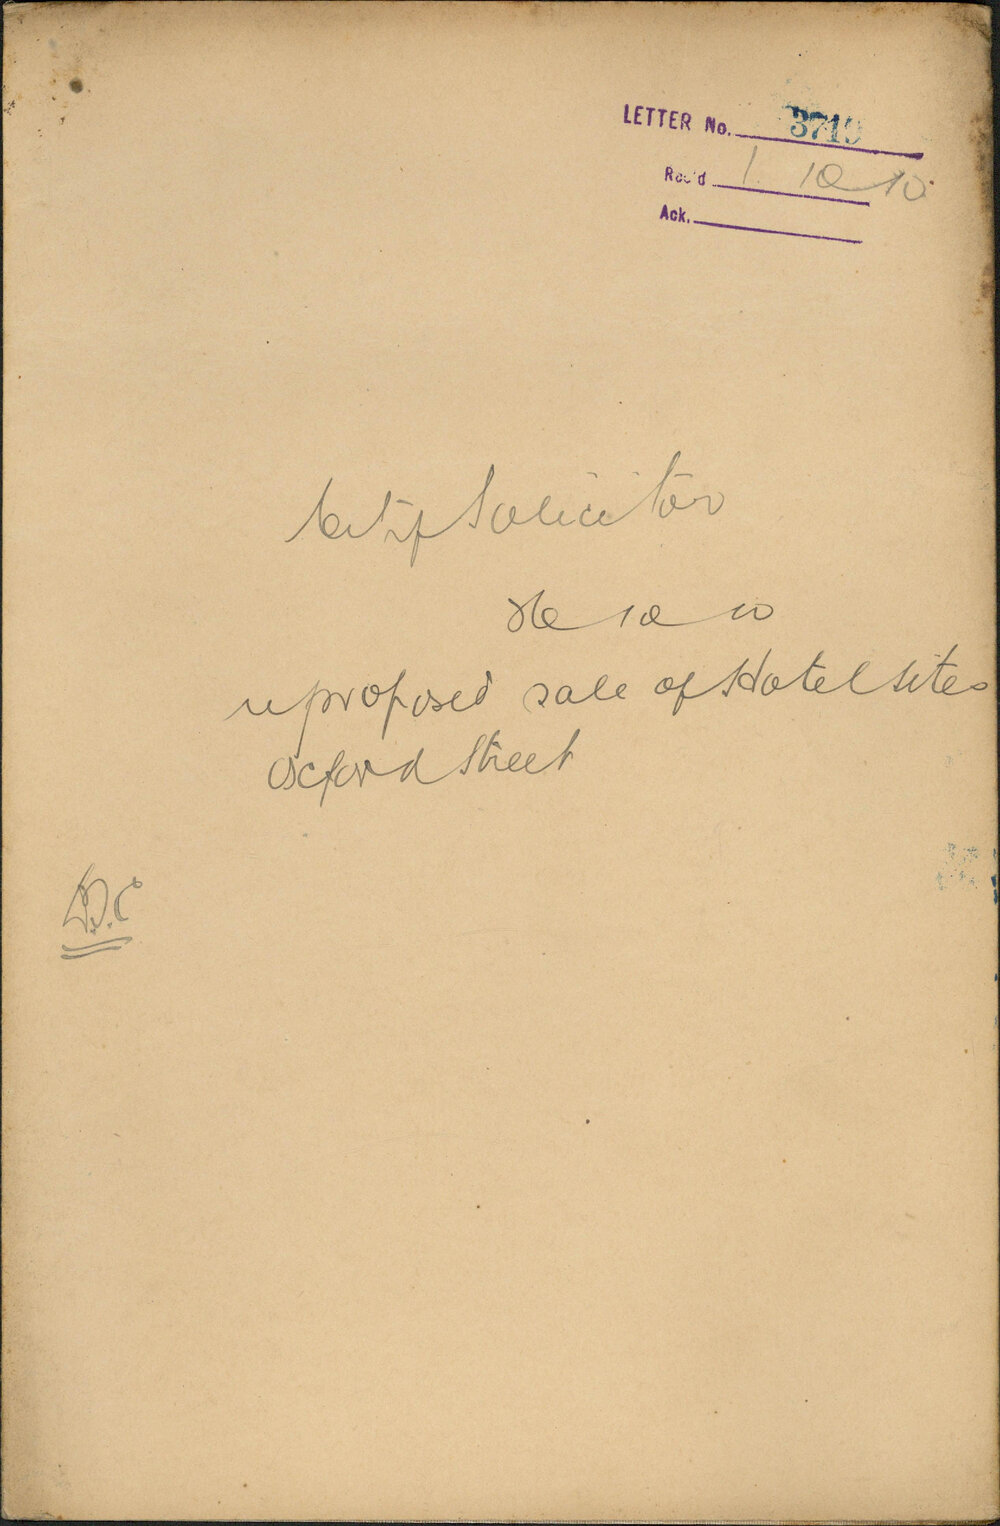 LETTER No. 3719
Rec'd 1 10 10
Ack.
City Solicitor
10 10
re proposed sale of Hotel sites
Oxford Street
D.C